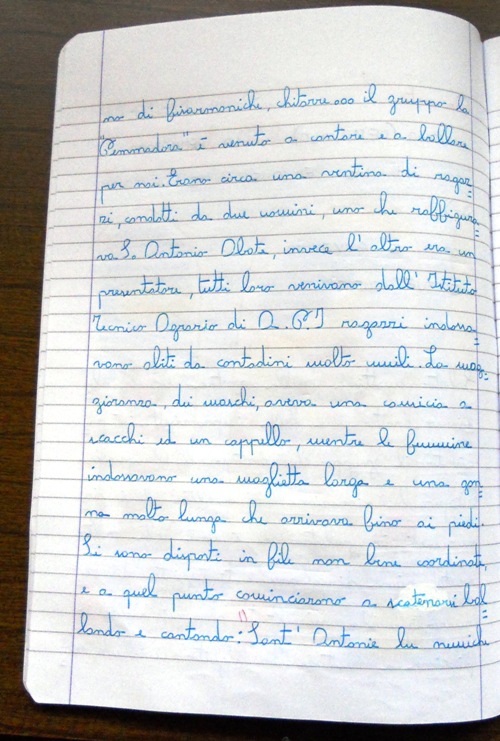 no di fisarmoniche, chitarre... il gruppo la
"Pemmadora" è venuto a cantare e a ballare
per noi. Erano circa una ventina di ragaz=
zi, condotti da due uomini, uno che raffigura=
va S. Antonio Abate, invece l'altro era un
presentatore, tutti loro venivano dall'Istituto
Tecnico Agrario di A. P. I ragazzi indossa=
vano abiti da contadini molto umili. La mag=
gioranza, dei maschi, aveva una camicia a
scacchi ed un cappello, mentre le femmine
indossavano una maglietta larga e una gon=
na molto lunga che arrivava fino ai piedi.
Si sono disposti in file non bene coordinate,
e a quel punto cominciarono a scatenarsi bal=
lando e cantando: "Sant'Antonie lu nemiche